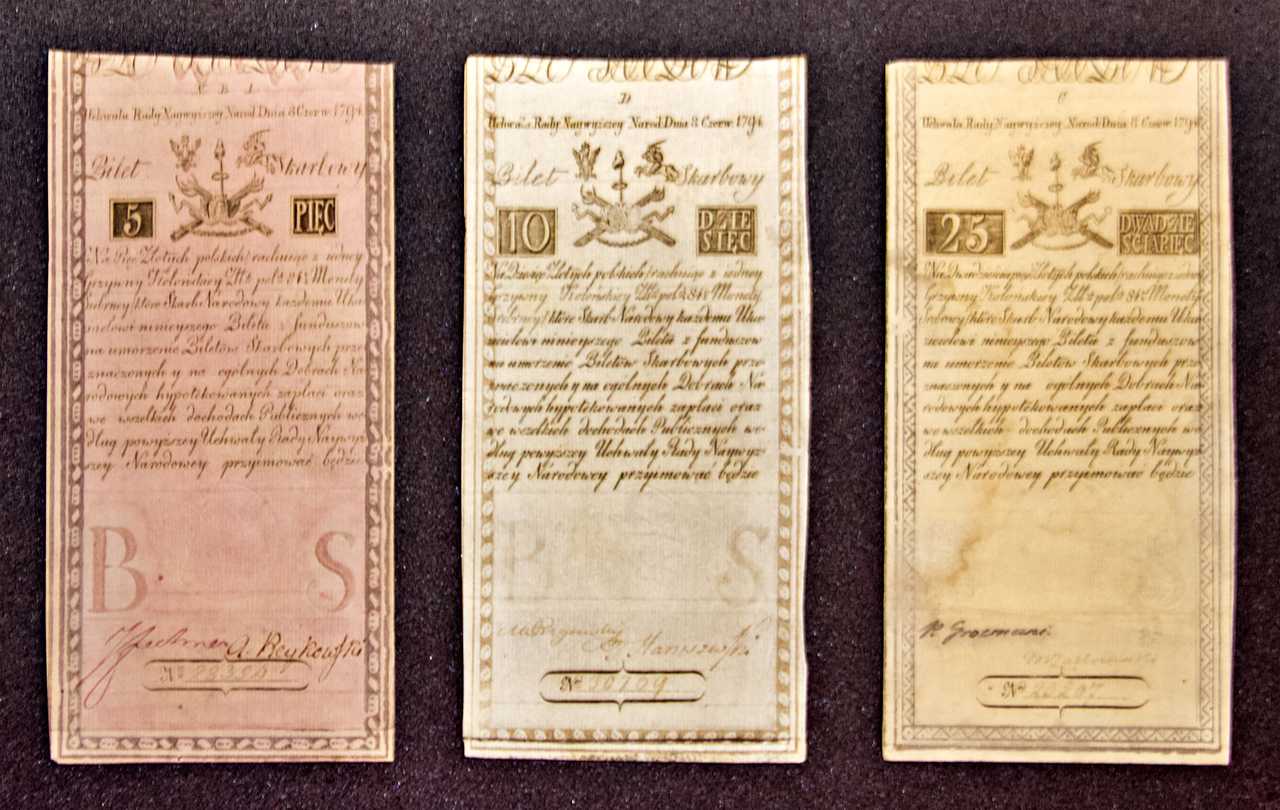 C B I
Uchwała Rady Naywyższey Narod. Dnia 8 Czerw. 1794
Bilet Skarbowy
5 PIĘĆ
Na Pięć Złotych polskich rachuiąc z iedney
Grzywny Kolońskiey Zł: pol: 84½ Monety
Srebrney które Skarb Narodowy każdemu Oka-
zicielowi ninieyszego Biletu z funduszow
na umorzenie Biletow Skarbowych prze-
znaczonych y na ogolnych Dobrach Na-
rodowych hypotekowanych zapłaci oraz
we wszelkich dochodach Publicznych we-
dług powyższey Uchwały Rady Naywyż-
szey Narodowey przyimować będzie
B S
A. Reykowski
No 23350
D
Uchwała Rady Naywyższey Narod. Dnia 8 Czerw. 1794
Bilet Skarbowy
10 DZIE
SIĘĆ
Na Dziesięć Złotych polskich rachuiąc z iedney
Grzywny Kolońskiey Zł: pol: 84½ Monety
Srebrney które Skarb Narodowy każdemu Oka-
zicielowi ninieyszego Biletu z funduszow
na umorzenie Biletow Skarbowych prze-
znaczonych y na ogolnych Dobrach Na-
rodowych hypotekowanych zapłaci oraz
we wszelkich dochodach Publicznych we-
dług powyższey Uchwały Rady Naywyż-
szey Narodowey przyimować będzie
B S
No 30109
C
Uchwała Rady Naywyższey Narod. Dnia 8 Czerw. 1794
Bilet Skarbowy
25 DWADZIE
ŚCIAPIĘĆ
Na Dwadzieściapięć Złotych polskich rachuiąc z iedney
Grzywny Kolońskiey Zł: pol: 84½ Monety
Srebrney które Skarb Narodowy każdemu Oka-
zicielowi ninieyszego Biletu z funduszow
na umorzenie Biletow Skarbowych prze-
znaczonych y na ogolnych Dobrach Na-
rodowych hypotekowanych zapłaci oraz
we wszelkich dochodach Publicznych we-
dług powyższey Uchwały Rady Naywyż-
szey Narodowey przyimować będzie
No